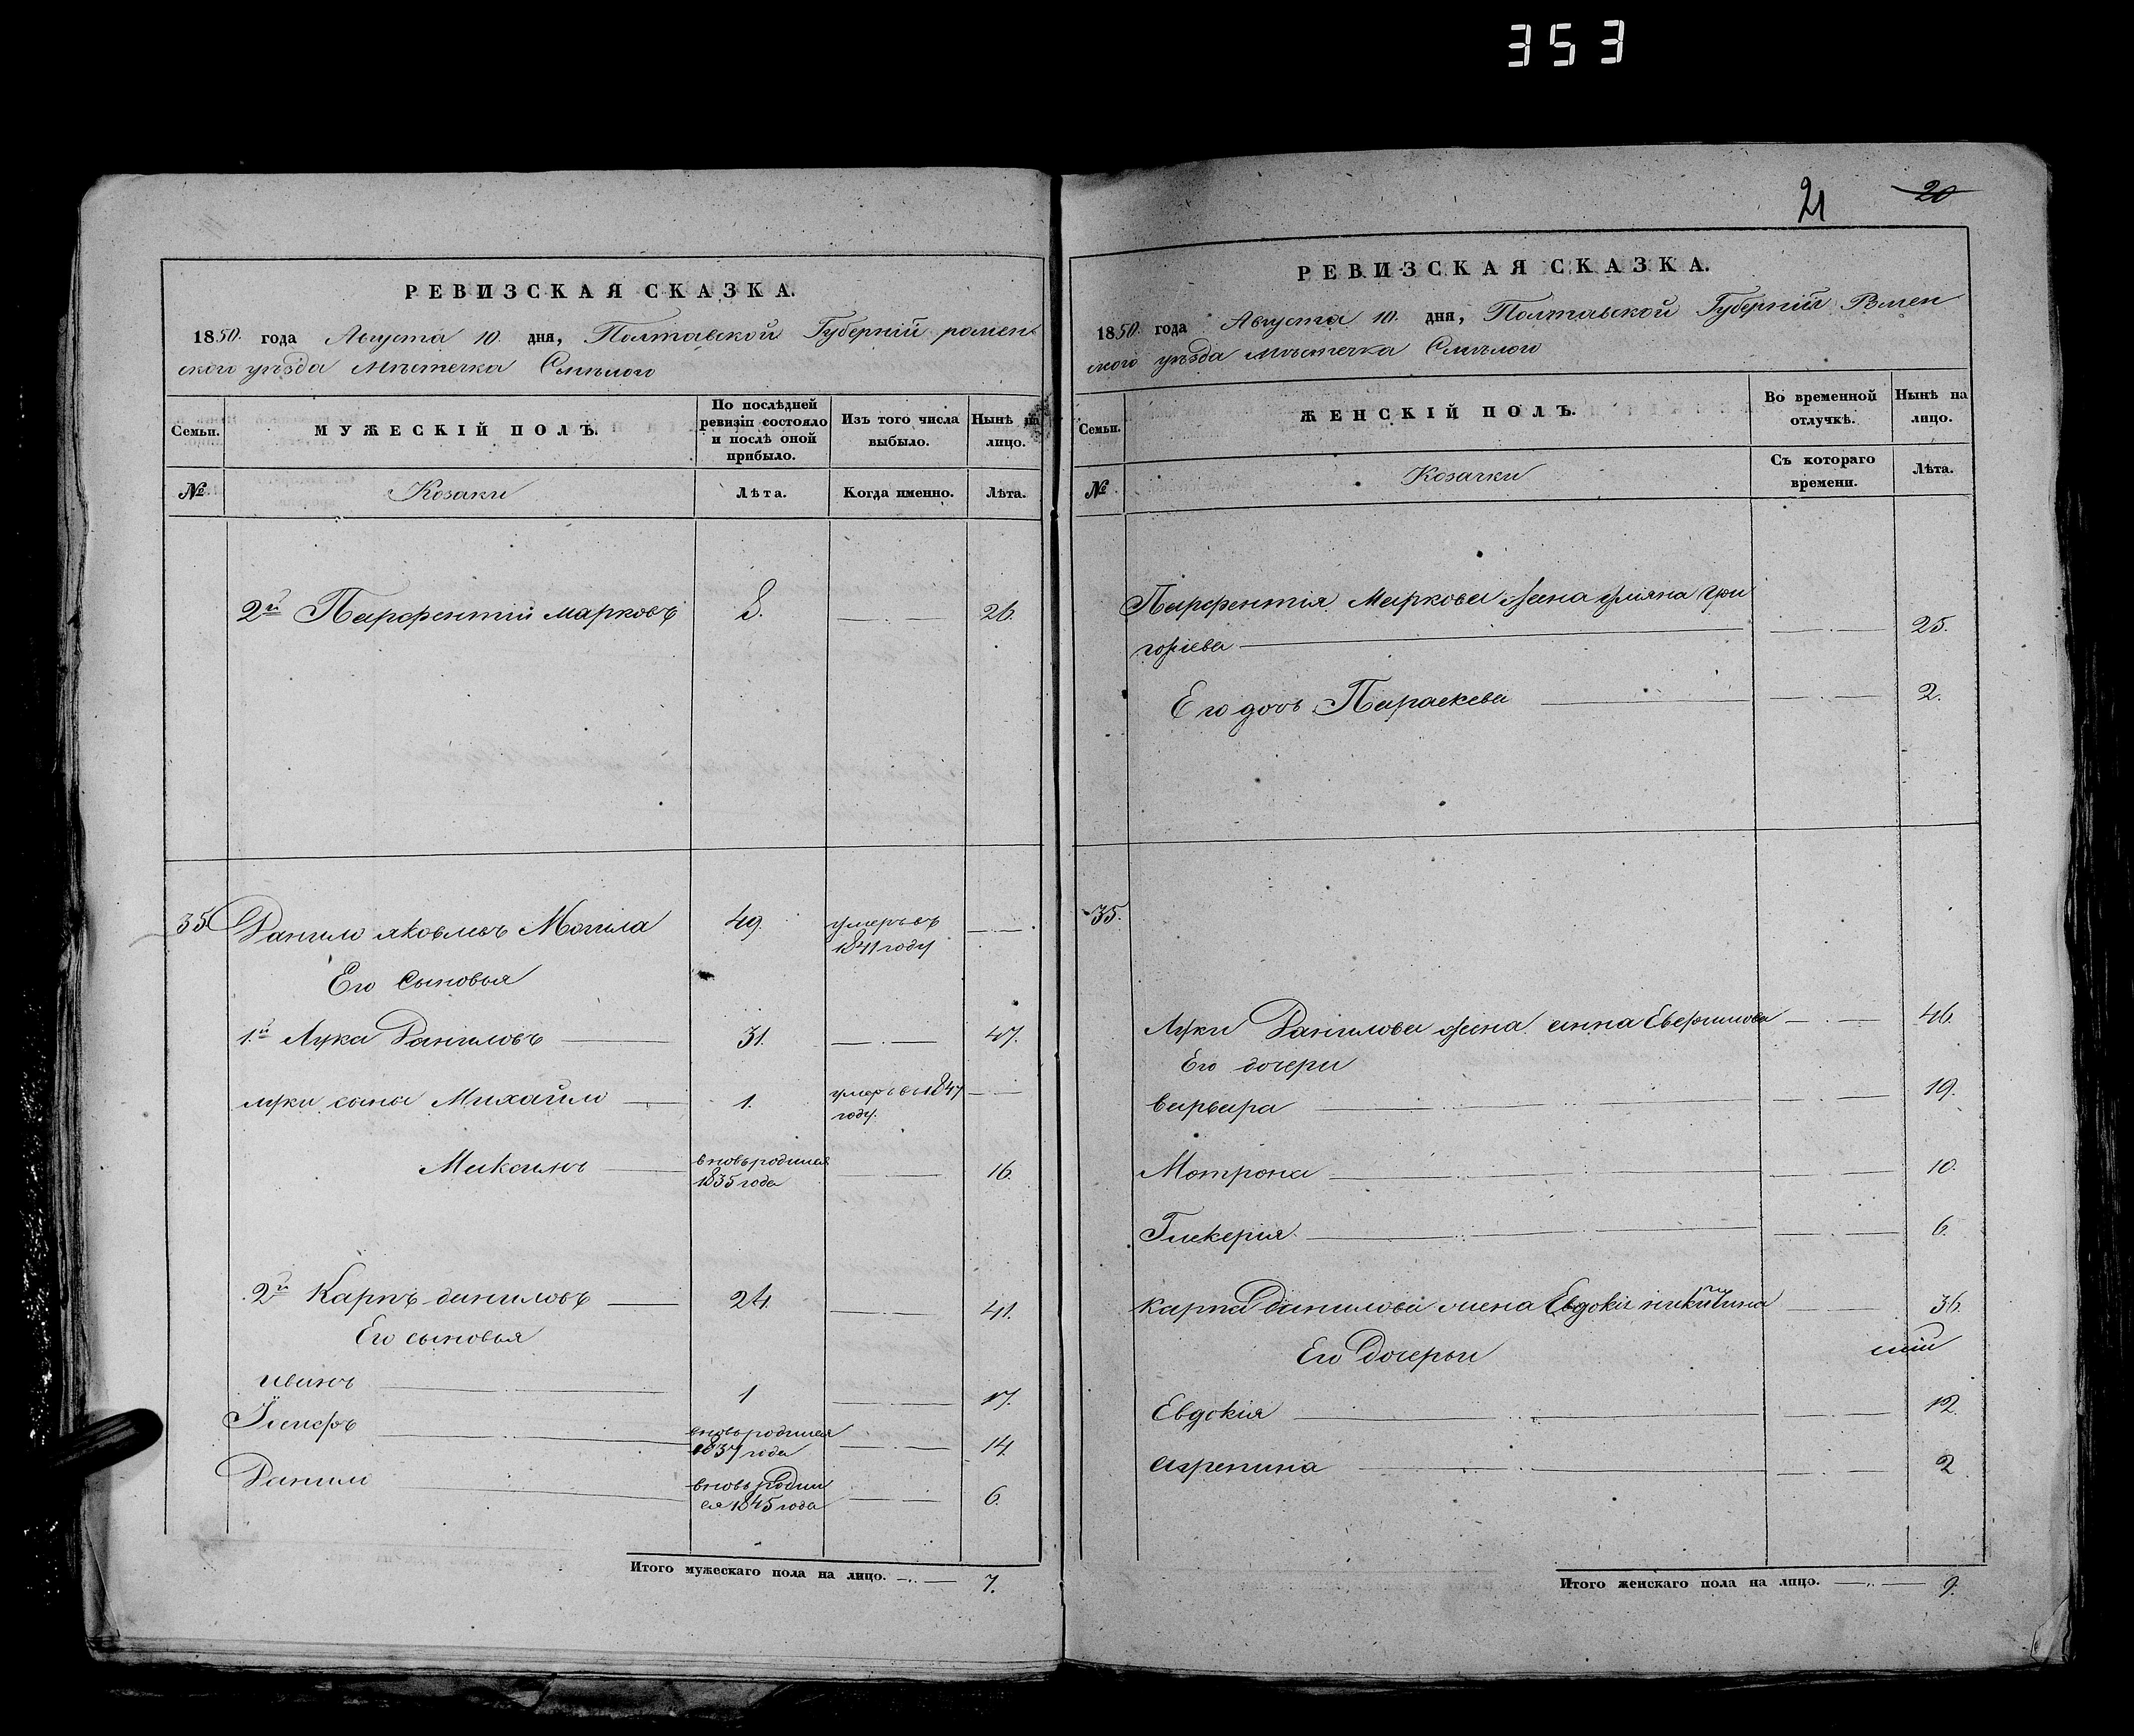 353
РЕВИЗСКАЯ СКАЗКА.
1850. года Августа 10. дня, Полтавской Губерніи ромен
ского уѣзда мѣстечка Смѣлого
Семьи.
МУЖЕСКІЙ ПОЛЪ.
По послѣдней
ревизіи состояло
и послѣ оной
прибыло.
Изъ того числа
выбыло.
Нынѣ на
лицо.
№
Козаки
Лѣта.
Когда именно.
Лѣта.
2й Парфентій марковъ 8. 26.
35 Данило яковлевъ Могила 49. умеръ въ
1841 году
Его Сыновья
1й Лука Даниловъ 31. 47.
луки сыны Михайло 1. умеръ въ 1847
году.
Максимъ вновьродился
1835 года 16.
2й Карпъ даниловъ 24. 41.
Его сыновья
иванъ 1 17.
Іосифъ вновьродился
1837 года 14
Данило вновь Родил
ся 1845 года 6.
Итого мужескаго пола на лицо. 7.
21 20
РЕВИЗСКАЯ СКАЗКА.
1850. года Августа 10. дня, Полтавской Губерніи Ромен
ского уѣзда мѣстечка Смѣлого
Семьи.
ЖЕНСКІЙ ПОЛЪ.
Во временной
отлучкѣ.
Нынѣ на
лицо.
№
Козачки
Съ котораго
времени.
Лѣта.
Парфентія Маркова жена уліяна гри
горіева 25.
Его дочь Параскева 2.
35.
Луки Данилова жена анна 46.
Его дочери
варвара 19.
Мотрона 10.
Гликерия 6.
карпа Данилова жена Евдокія никитина 36.
Его Дочерьи
Евдокія 12.
агрепина 2
Итого женскаго пола на лицо. 9.